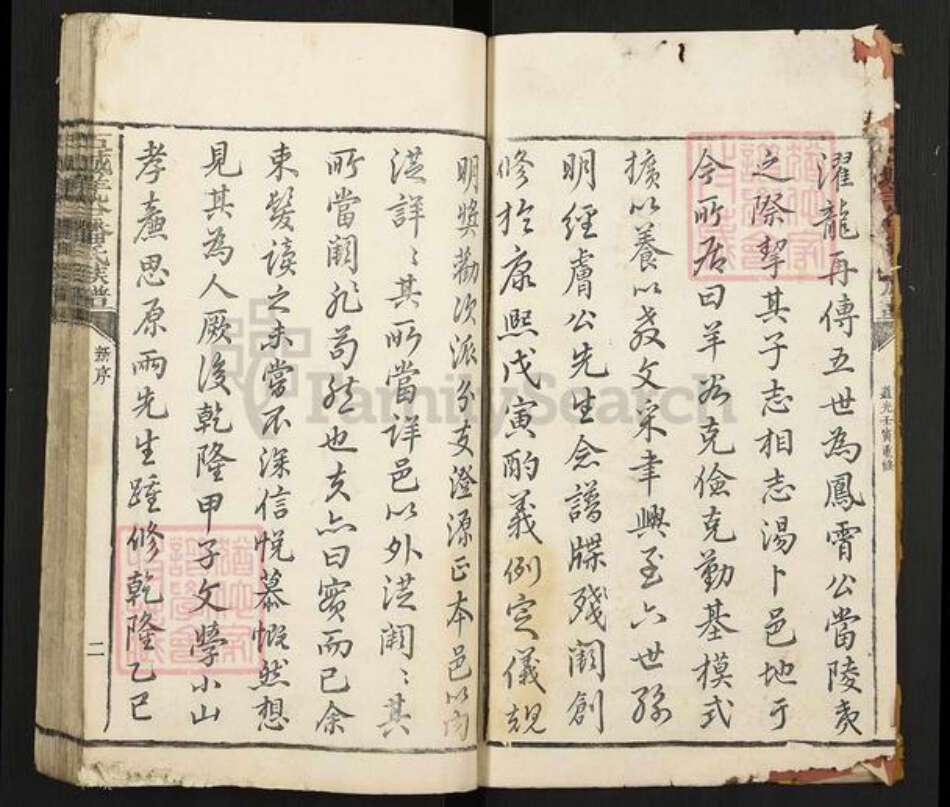 濯龍再傳五世為鳳霄公當陵夷
之際挈其子志相志湯卜邑地于
今所居曰羊谷克儉克勤基模式
擴以養以教文采聿興至六世孫
明經膚公先生念譜牒殘闕創
修於康熙戊寅酌義例定儀規
明獎勸次派分支澄源正本邑以內
從詳詳其所當詳邑以外從闕闕其
所當闕非苟然也夫亦曰實而已余
束髮讀之未嘗不深信悅慕慨然想
見其為人厥後乾隆甲子文學小山
孝廉思原兩先生踵修乾隆乙巳
道光壬寅重修
氏族譜
新序
二
FamilySearch